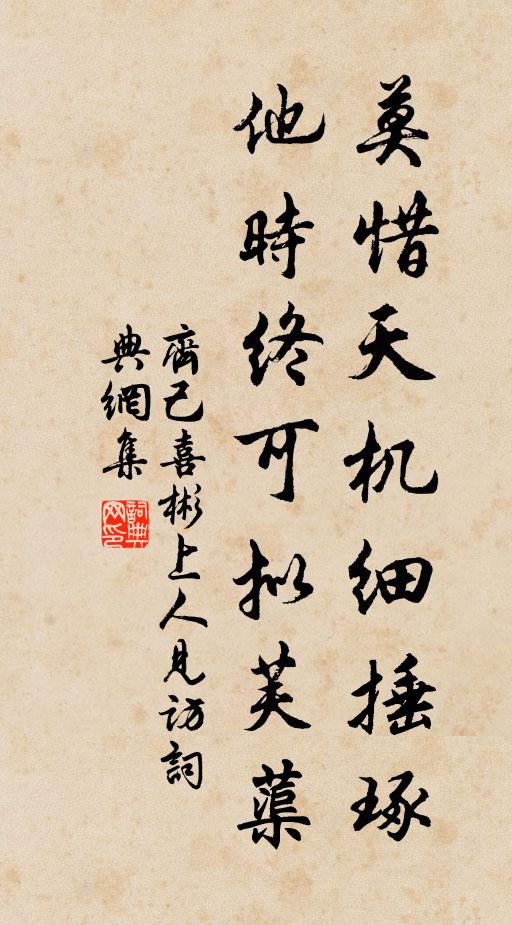 莫惜天机细捶琢
他時终可拟芙蕖
齊己喜彬上人見訪詞
典網集
詞典网印